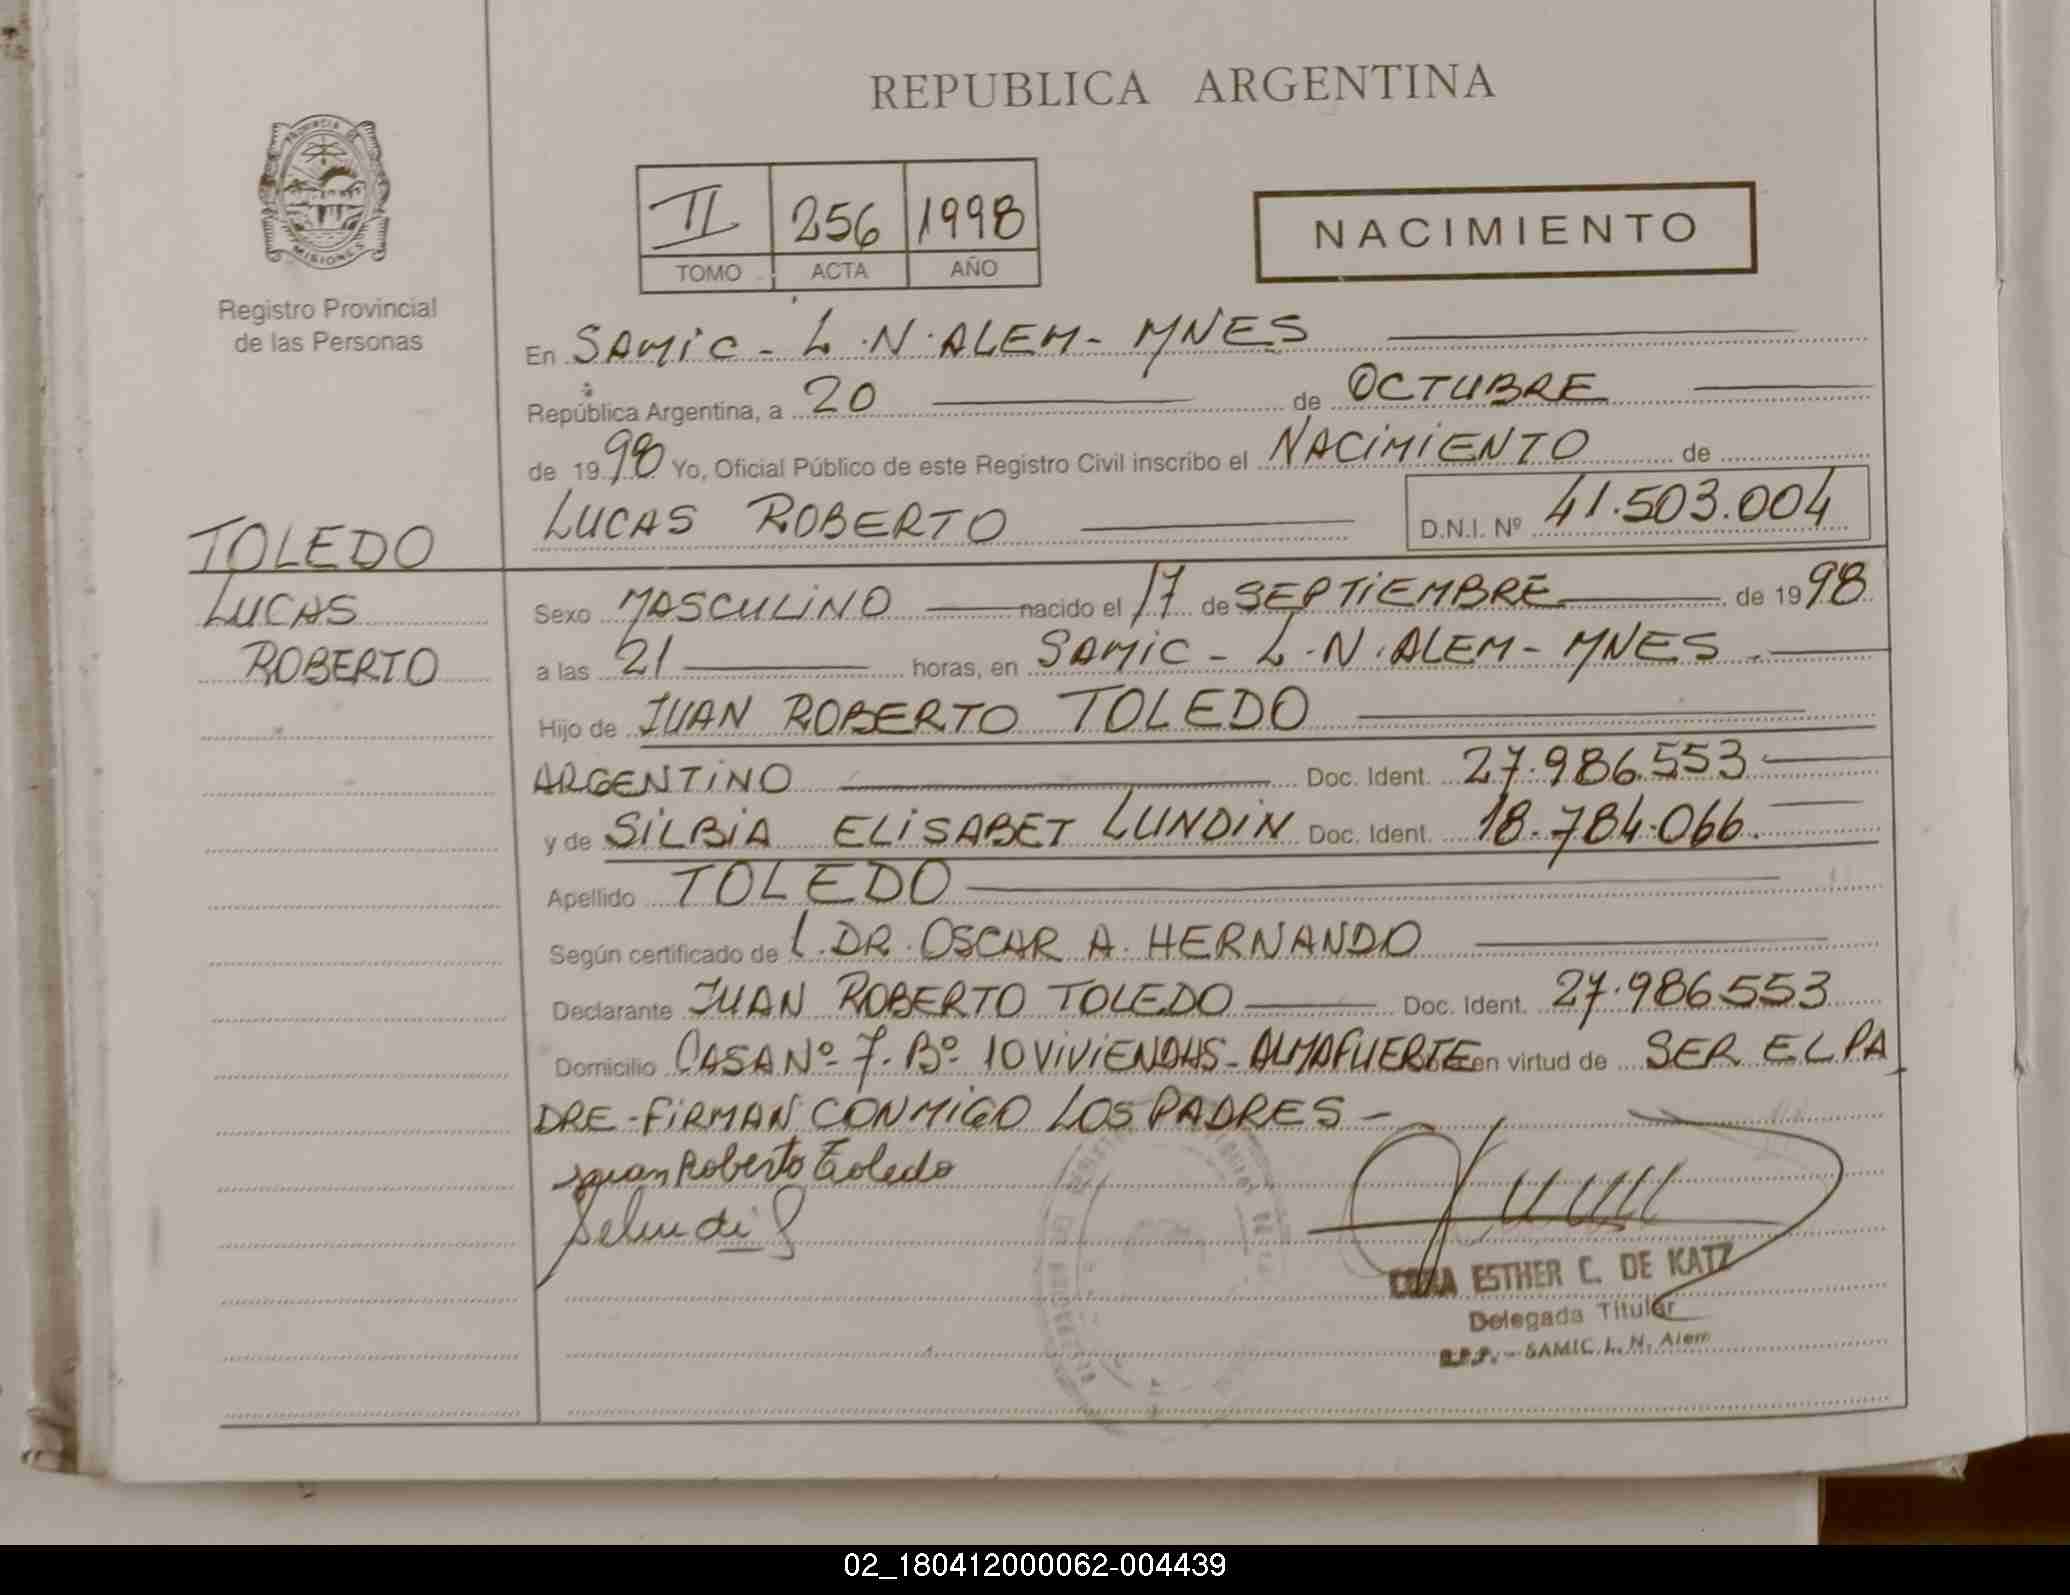 REPUBLICA ARGENTINA
PROVINCIA DE
MISIONES
Registro Provincial
de las Personas
II 256 1998
TOMO ACTA AÑO
NACIMIENTO
En SAMIC - L.N.ALEM - MNES
República Argentina, a 20 de OCTUBRE
de 1998 Yo, Oficial Público de este Registro Civil inscribo el NACIMIENTO de
LUCAS ROBERTO D.N.I. Nº 41.503.004
TOLEDO
LUCAS
ROBERTO
Sexo MASCULINO nacido el 17 de SEPTIEMBRE de 1998
a las 21 horas, en SAMIC - L.N.ALEM - MNES.
Hijo de JUAN ROBERTO TOLEDO
ARGENTINO Doc. Ident. 27.986.553
y de SILBIA ELISABET LUNDIN Doc. Ident. 18.784.066.
Apellido TOLEDO
Según certificado de L. DR. OSCAR A. HERNANDO
Declarante JUAN ROBERTO TOLEDO Doc. Ident. 27.986553
Domicilio CASA Nº 7. Bº 10 VIVIENDAS - ALMAFUERTE en virtud de SER EL PA
DRE - FIRMAN CONMIGO LOS PADRES -
Juan Roberto Toledo
ESTHER C. DE KATZ
Delegada Titular
R.P.P. - SAMIC L. N. Alem
02_180412000062-004439